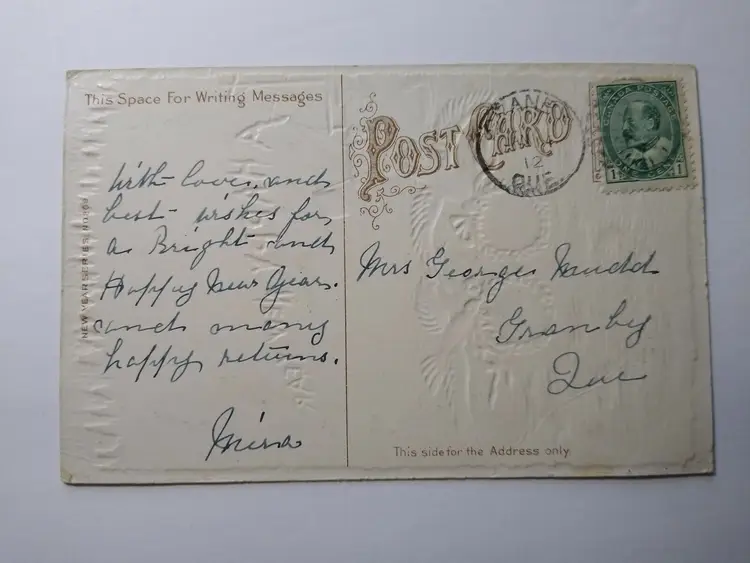 This Space For Writing Messages
With love, and
best wishes for
a Bright and
Happy New Year.
and many
happy returns.
NEW YEAR SERIES
POST CARD
12
QUE.
CANADA POSTAGE
1 1
Mrs George Mudd
Granby
Que
This side for the Address only